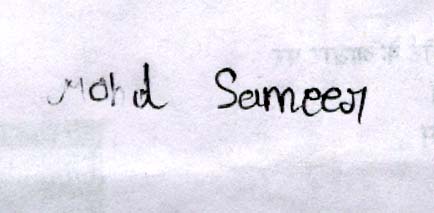 Mohd Sameer